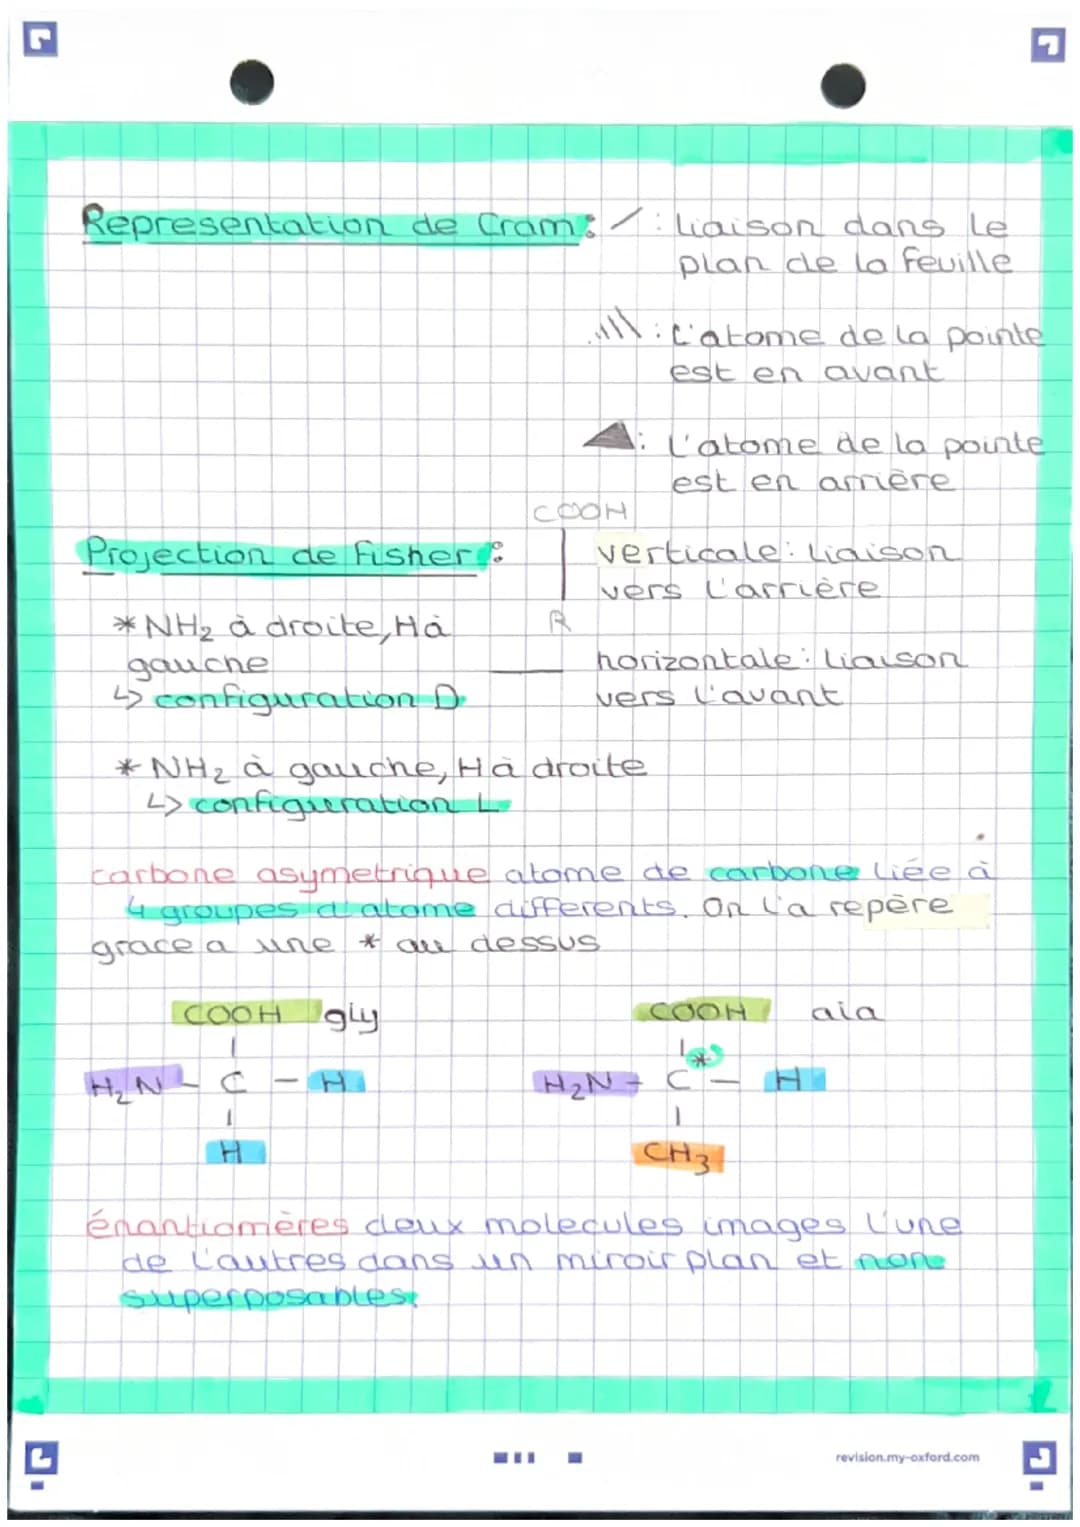 Representation de Cram: / : liaison dans le
plan de la feuille
: L'atome de la pointe
est en avant
: L'atome de la pointe
est en arrière
COOH
Projection de Fisher : verticale: liaison
vers l'arrière
* NH₂ à droite, H à R
gauche horizontale: liaison
↳ configuration D vers l'avant
* NH₂ à gauche, H à droite
↳ configuration L
carbone asymetrique atome de carbone liée à
4 groupes d'atome differents. On l'a repère
grace a une * au dessus
COOH gly COOH ala
*
H₂N - C - H H₂N - C - H
H CH₃
énantiomères deux molecules images l'une
de l'autres dans un miroir plan et non
superposables.
revision.my-oxford.com